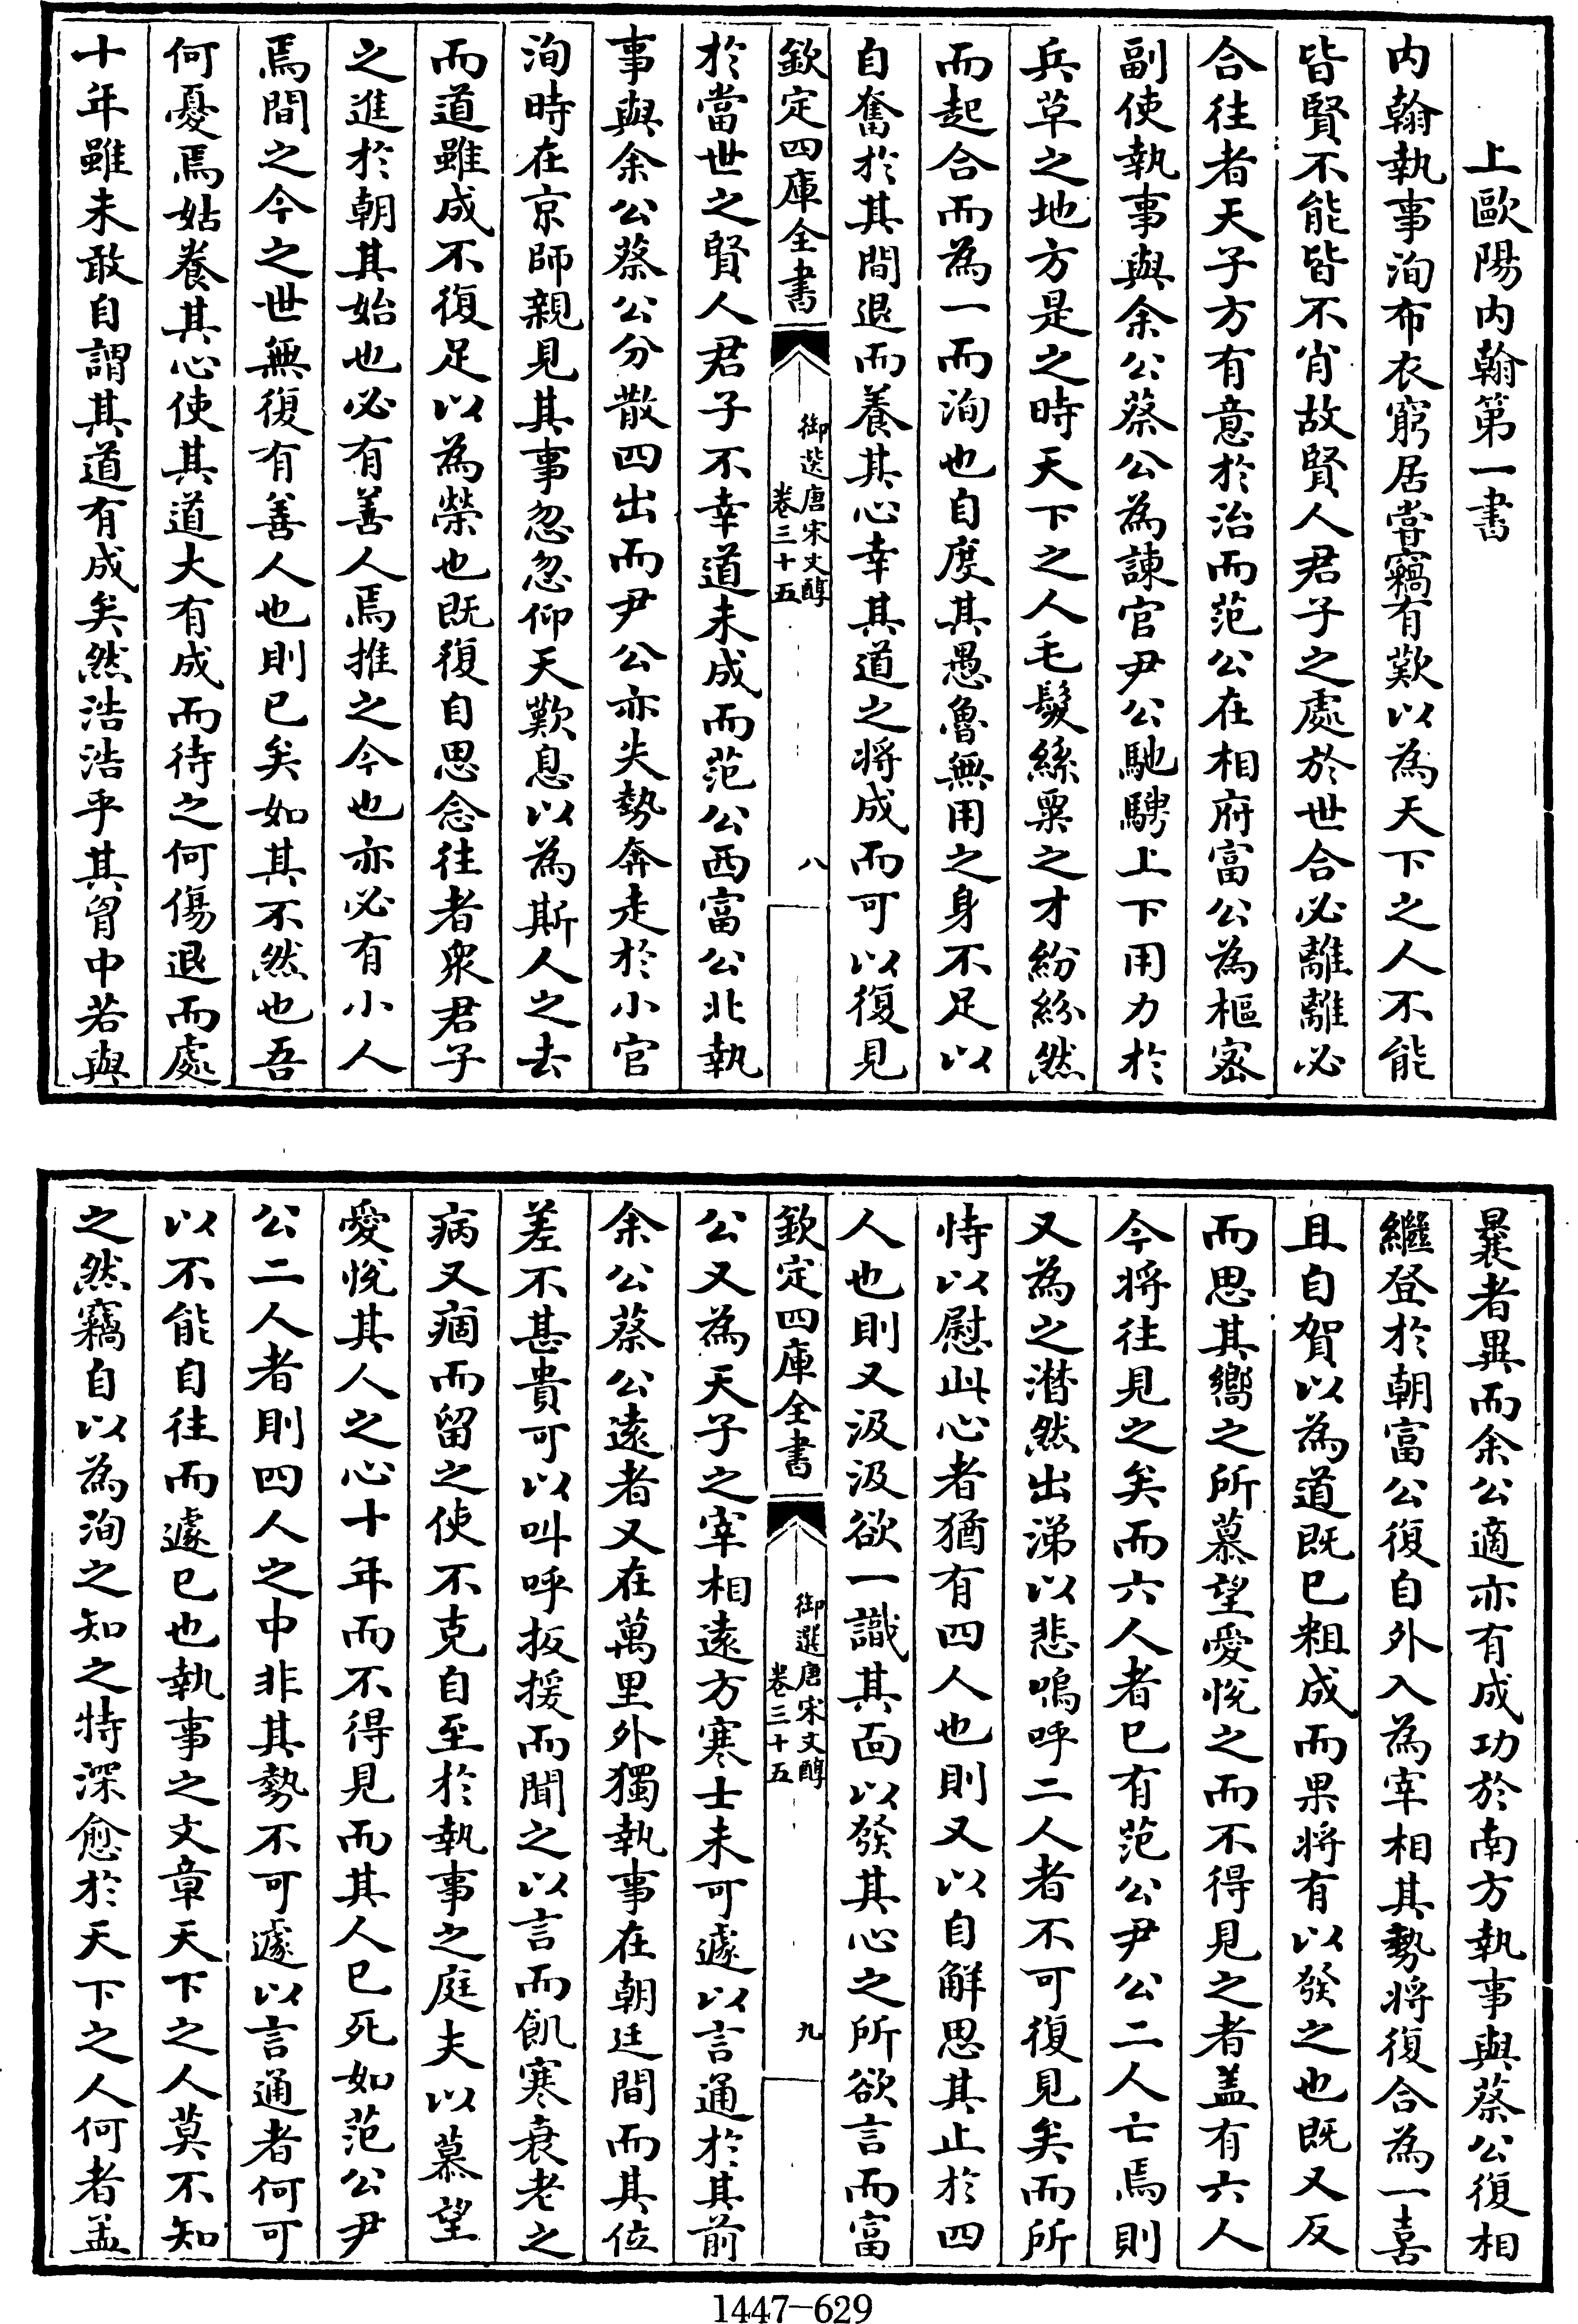 上歐陽内翰第一書
内翰執事洵布衣窮居嘗竊有歎以為天下之人不能
皆賢不能皆不肖故賢人君子之處於世合必離離必
合往者天子方有意於治而范公在相府富公為樞宻
副使執事與余公蔡公為諫官尹公馳騁上下用力於
兵草之地方是之時天下之人毛髮絲粟之才紛紛然
而起合而為一而洵也自度其愚魯無用之身不足以
自奮於其間退而養其心幸其道之将成而可以復見
欽定四庫全書
御選唐宋文醇
卷三十五
八
於當世之賢人君子不幸道未成而范公西富公北執
事與余公蔡公分散四出而尹公亦失勢奔走於小官
洵時在京師親見其事忽忽仰天歎息以為斯人之去
而道雖成不復足以為榮也既復自思念往者衆君子
之進於朝其始也必有善人焉推之今也亦必有小人
焉間之今之世無復有善人也則已矣如其不然也吾
何憂焉姑養其心使其道大有成而待之何傷退而處
十年雖未敢自謂其道有成矣然浩浩乎其胷中若與
曩者異而余公適亦有成功於南方執事與蔡公復相
繼登於朝富公復自外入為宰相其勢将復合為一喜
且自賀以為道既已粗成而果将有以發之也既又反
而思其嚮之所慕望愛悅之而不得見之者盖有六人
今将往見之矣而六人者已有范公尹公二人亡焉則
又為之潸然出涕以悲嗚呼二人者不可復見矣而所
恃以慰此心者猶有四人也則又以自解思其止於四
人也則又汲汲欲一識其面以發其心之所欲言而富
欽定四庫全書
御選唐宋文醇
卷三十五
九
公又為天子之宰相遠方寒士未可遽以言通於其前
余公蔡公遠者又在萬里外獨執事在朝廷間而其位
差不甚貴可以叫呼扳援而聞之以言而飢寒衰老之
病又痼而留之使不克自至於執事之庭夫以慕望
愛悅其人之心十年而不得見而其人已死如范公尹
公二人者則四人之中非其勢不可遽以言通者何可
以不能自往而遽已也執事之文章天下之人莫不知
之然竊自以為洵之知之特深愈於天下之人何者盖
1447—629